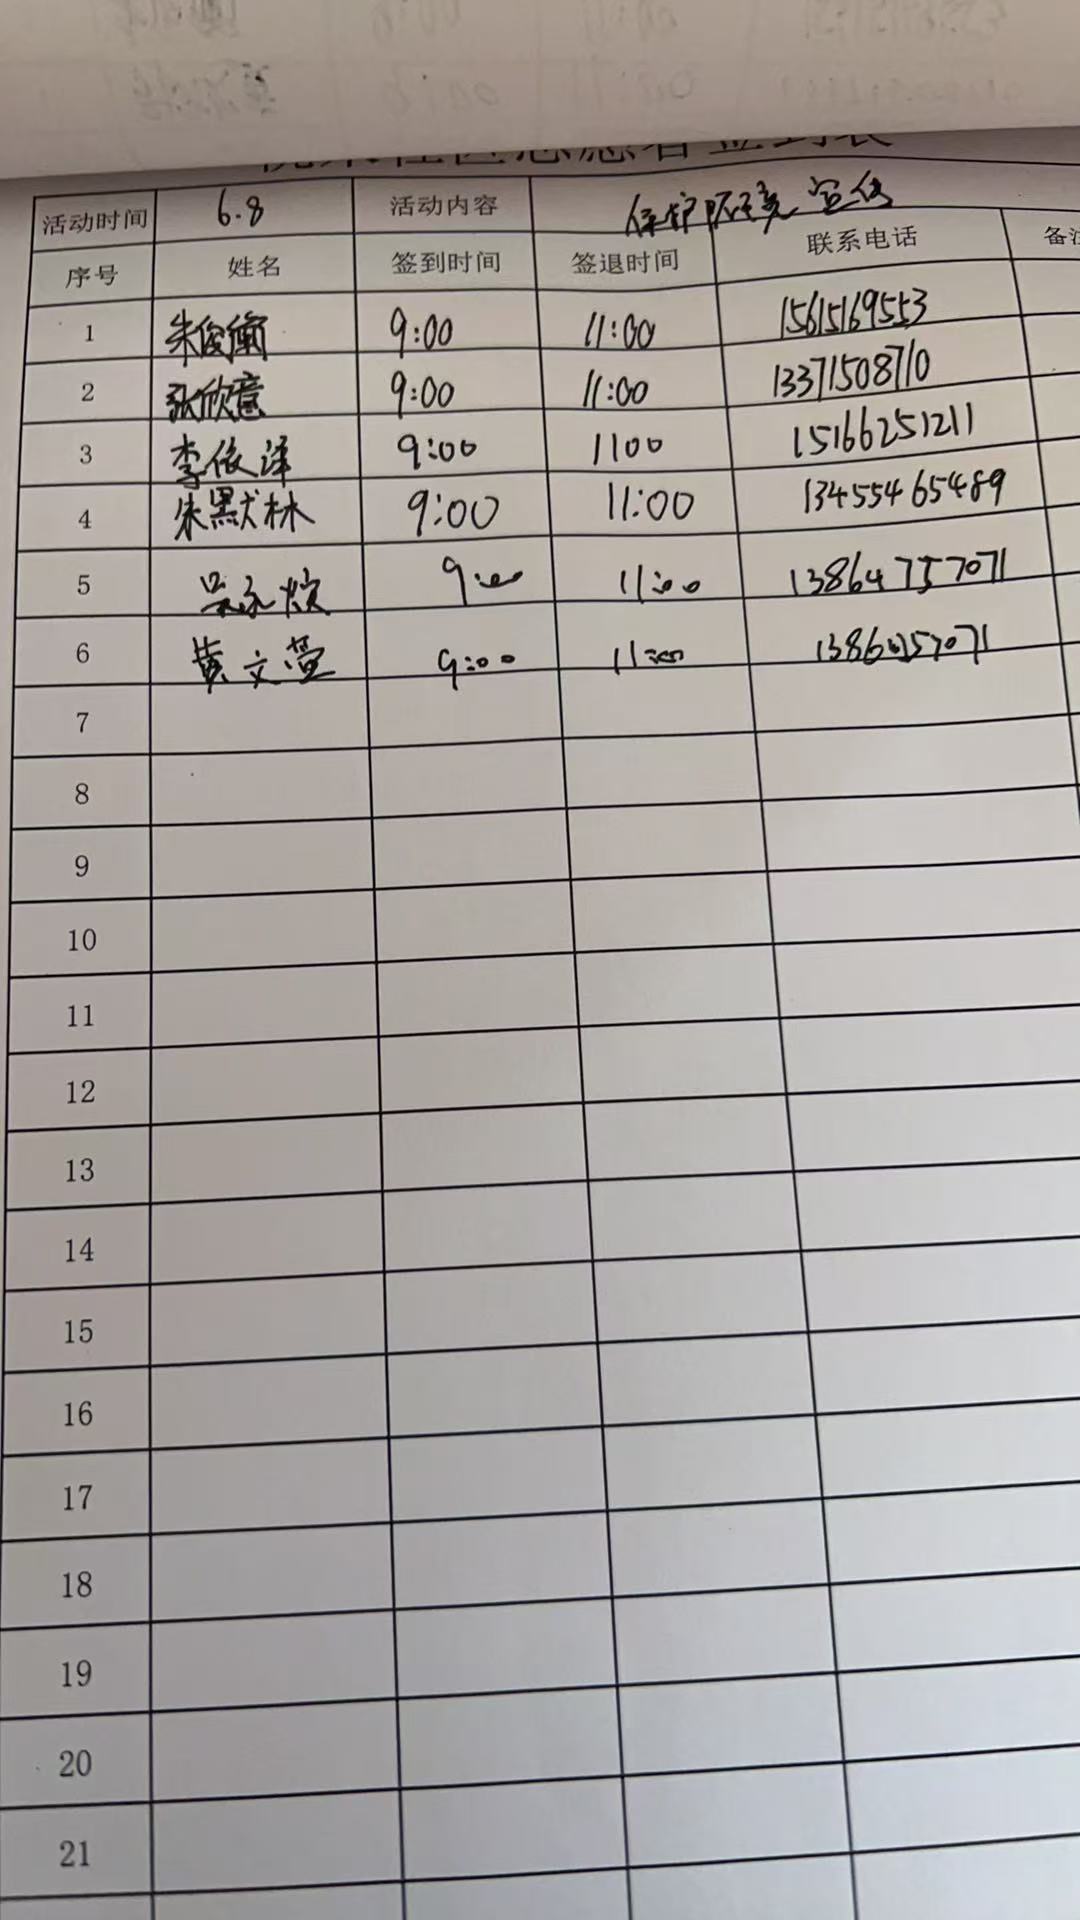 活动时间 6.8 活动内容 保护环境宣传
序号 姓名 签到时间 签退时间 联系电话
1 朱俊衡 9:00 11:00 15615169553
2 张欣意 9:00 11:00 13371508710
3 李依泽 9:00 1100 15166251211
4 朱默林 9:00 11:00 13455465489
5 9:00 11:00 13864757071
6 黄文萱 9:00 11:00
7
8
9
10
11
12
13
14
15
16
17
18
19
20
21